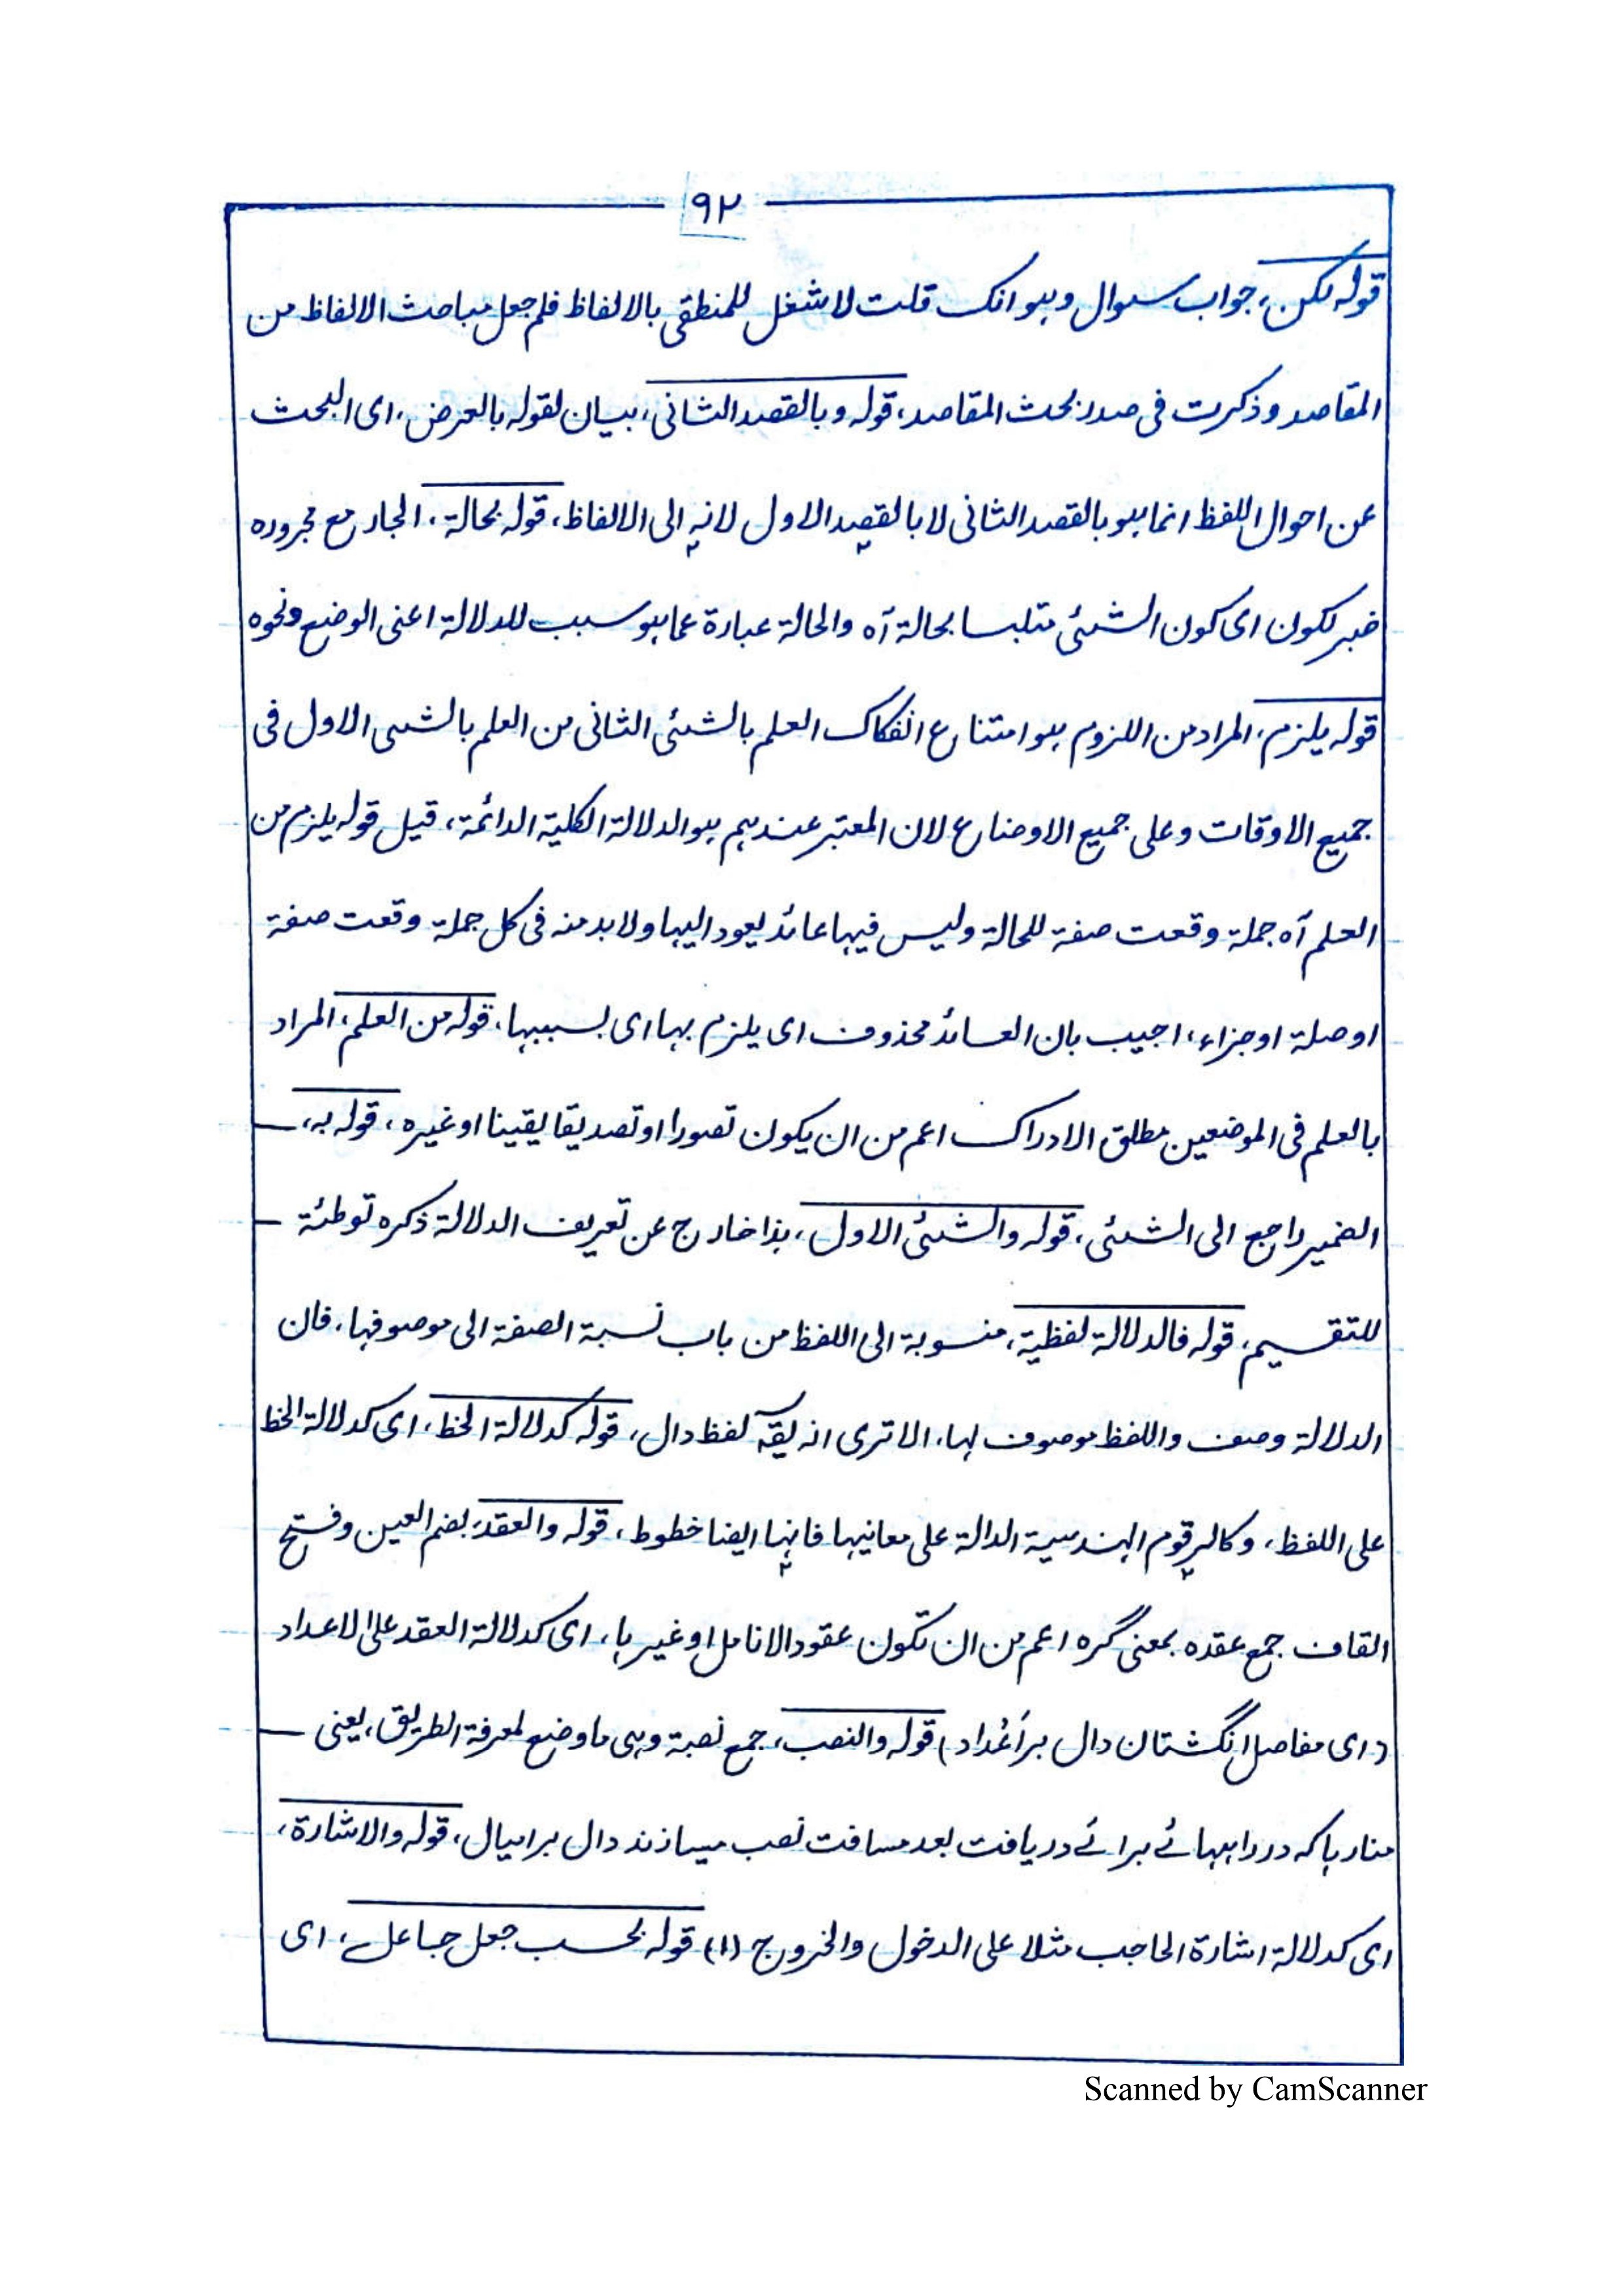 ۹۲
قوله لكن، جواب سوال وهو انك قلت لا شغل للمنطقى بالالفاظ فلم جعل مباحث الالفاظ من
المقاصد وذكرت فى صدر بحث المقاصد، قوله وبالقصد الثانى، بيان لقوله بالعرض، اى البحث
عن احوال اللفظ انما هو بالقصد الثانى لا بالقصد الاول لانه الى الالفاظ، قوله بحالة، الجار مع مجروره
خبر لكون اى كون الشئ متلبسا بحالة آه والحالة عبارة عما هو سبب للدلالة اعنى الوضع ونحوه
قوله يلزم، المراد من اللزوم هو امتناع انفكاك العلم بالشئ الثانى من العلم بالشى الاول فى
جميع الاوقات وعلى جميع الاوضاع لان المعتبر عندهم هو الدلالة الكلية الدائمة، قيل قوله يلزم من
العلم آه جملة وقعت صفة للحالة وليس فيها عائد يعود اليها ولا بد منه فى كل جملة وقعت صفة
او صلة او جزاء، اجيب بان العائد محذوف اى يلزم بها اى بسببها، قوله من العلم، المراد
بالعلم فى الموضعين مطلق الادراك اعم من ان يكون تصورا او تصديقا يقينا او غيره، قوله به،
الضمير راجع الى الشئى، قوله والشئى الاول، هذا خارج عن تعريف الدلالة ذكره توطئة
للتقسيم، قوله فالدلالة لفظية، منسوبة الى اللفظ من باب نسبة الصفة الى موصوفها، فان
الدلالة وصف واللفظ موصوف لها، الا ترى انه يقہ لفظ دال، قوله كدلالة الخط، اى كدلالة الخط
على اللفظ، وكالرقوم الهندسية الدالة على معانيها فانها ايضا خطوط، قوله والعقد، بضم العين وفتح
القاف جمع عقده بمعنى گره اعم من ان تكون عقود الانامل او غيرها، اى كدلالة العقد على الاعداد
(اى مفاصل انگشتان دال بر اَعْداد) قوله والنصب، جمع نصبة وهى ما وضع لمعرفة الطريق، يعنى
منارہا كہ در راہہائے برائے دريافت بعد مسافت نصب ميسازند دال بر اميال، قوله والاشارة،
اى كدلالة اشارة الحاجب مثلا على الدخول والخروج (۱) قوله بحسب جعل جاعل، اى
Scanned by CamScanner